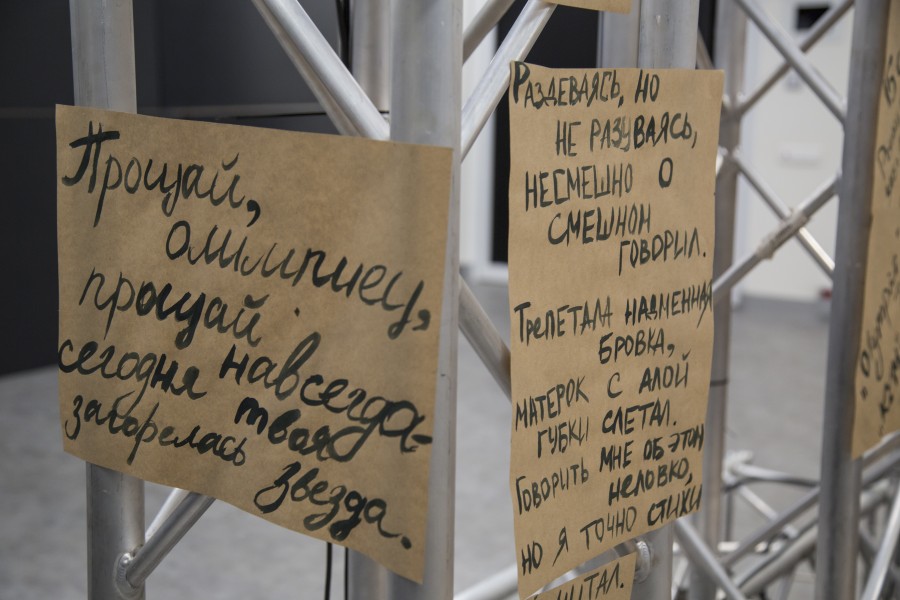 Прощай,
олимпиец,
прощай
навсегда-
сегодня твоя
загорелась
звезда.
Раздеваясь, но
не разуваясь,
несмешно о
смешном
говорил.
Трепетала надменная
бровка,
матерок с алой
губки слетал.
Говорить мне об этом
неловко,
но я точно стихи